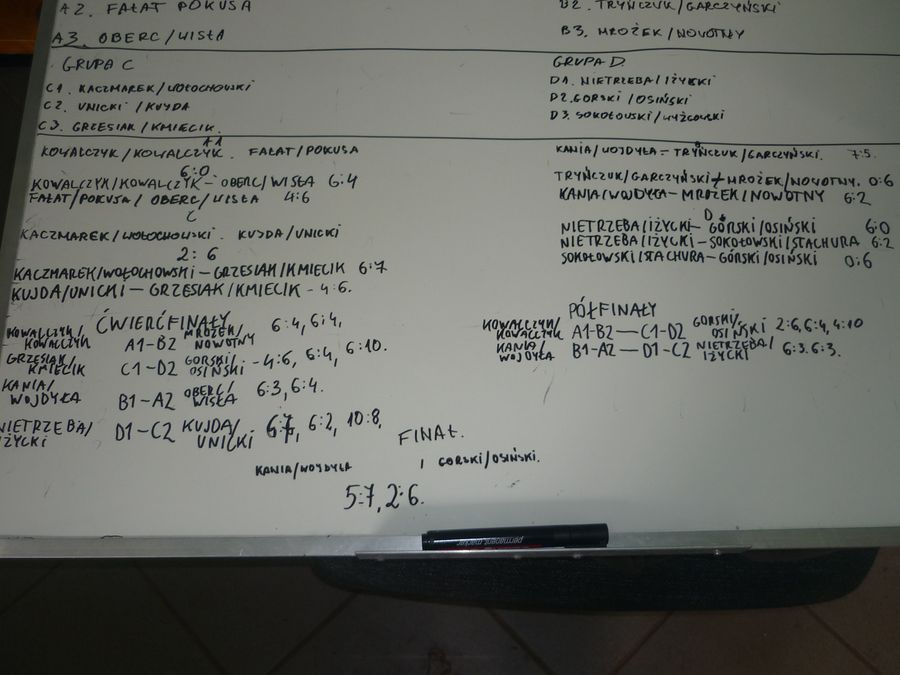 A2. FAŁAT POKUSA
A3. OBERC/WISŁA
B2. TRYŃCZUK/GARCZYŃSKI
B3. MROŻEK/NOWOTNY
GRUPA C
C1. KACZMAREK/WOŁOCHOWSKI
C2. UNICKI/KUJDA
C3. GRZESIAK/KMIECIK.
GRUPA D.
D1. NIETRZEBA/IŻYCKI
D2. GORSKI/OSIŃSKI
D3. SOKOŁOWSKI/WYŻGOWSKI
A1
KOWALCZYK/KOWALCZYK. FAŁAT/POKUSA
6:0
KOWALCZYK/KOWALCZYK – OBERC/WISŁA 6:4
FAŁAT/POKUSA/OBERC/WISŁA 4:6
C
KACZMAREK/WOŁOCHOWSKI. KUJDA/UNICKI
2:6
KACZMAREK/WOŁOCHOWSKI – GRZESIAK/KMIECIK 6:7
KUJDA/UNICKI – GRZESIAK/KMIECIK - 4:6.
KANIA/WOJDYŁA – TRYŃCZUK/GARCZYŃSKI. 7:5.
TRYŃCZUK/GARCZYŃSKI – MROŻEK/NOWOTNY. 0:6
KANIA/WOJDYŁA – MROŻEK/NOWOTNY 6:2
D
NIETRZEBA/IŻYCKI – GÓRSKI/OSIŃSKI 6:0
NIETRZEBA/IŻYCKI – SOKOŁOWSKI/STACHURA 6:2
SOKOŁOWSKI/STACHURA – GÓRSKI/OSIŃSKI 0:6
ĆWIERĆFINAŁY
KOWALCZYK/KOWALCZYK A1-B2 MROŻEK/NOWOTNY 6:4, 6:4,
GRZESIAK/KMIECIK C1-D2 GORSKI/OSIŃSKI - 4:6, 6:4, 6:10.
KANIA/WOJDYŁA B1-A2 OBERC/WISŁA 6:3, 6:4.
NIETRZEBA/IŻYCKI D1-C2 KUJDA/UNICKI 6:7, 6:2, 10:8,
PÓŁFINAŁY
KOWALCZYK/KOWALCZYK A1-B2 — C1-D2 GORSKI/OSIŃSKI 2:6, 6:4, 4:10
KANIA/WOJDYŁA B1-A2 — D1-C2 NIETRZEBA/IŻYCKI 6:3. 6:3.
FINAŁ.
KANIA/WOJDYŁA / GORSKI/OSIŃSKI.
5:7, 2:6.
permanent marker